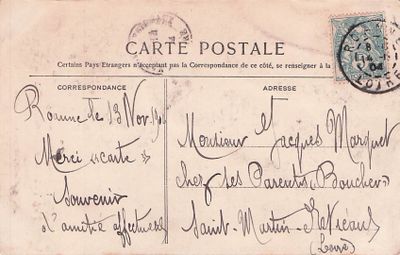 CARTE POSTALE
Certains Pays Etrangers n'acceptant pas la Correspondance de ce côté, se renseigner à la
CORRESPONDANCE
Roanne le 13 Nov.
Merci « carte »
Souvenir
d'amitié affectueuse
ADRESSE
Monsieur Jacques Marquet
chez ses Parents « Boucher »
Saint-Martin-d'Estreaux
(Loire)